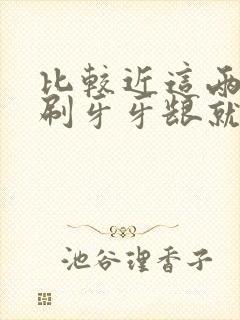 比較近這兩
刷牙牙齦就
池谷理香子